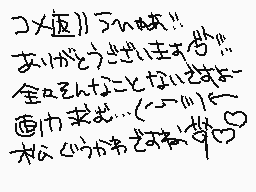 コメ返りうれぬあ!!
ありがとうございます!!!
全々そんなことないですよー
画力求む…(ーー;;;)←
ぐうかわですね♡♡